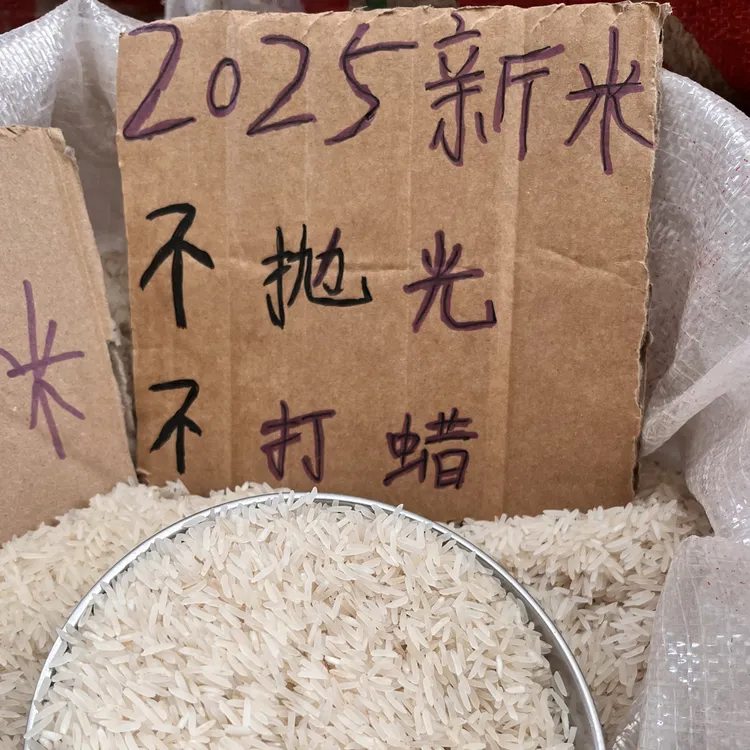 2025新米
不抛光
不打蜡
米